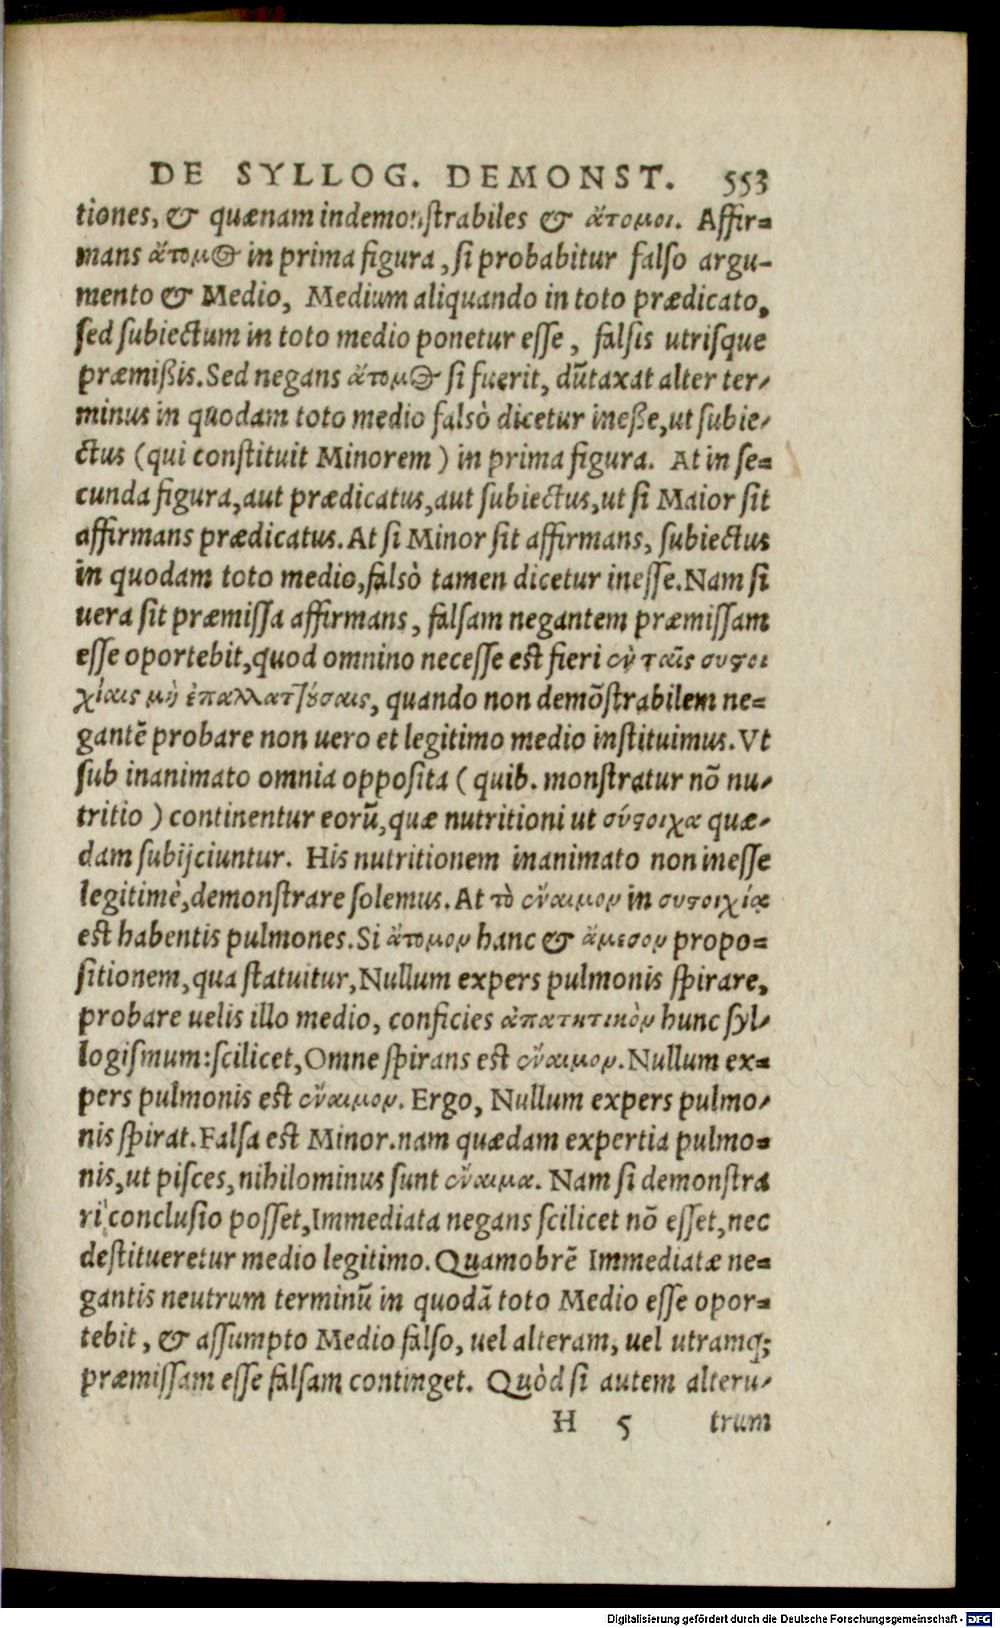 DE SYLLOG. DEMONST. 553
tiones, & quænam indemonstrabiles & ἄτομοι. Affir-
mans ἄτομος in prima figura, si probabitur falso argu-
mento & Medio, Medium aliquando in toto prædicato,
sed subiectum in toto medio ponetur esse, falsis utrisque
præmißis. Sed negans ἄτομος si fuerit, dūtaxat alter ter-
minus in quodam toto medio falsò dicetur ineße, ut subie-
ctus (qui constituit Minorem) in prima figura. At in se-
cunda figura, aut prædicatus, aut subiectus, ut si Maior sit
affirmans prædicatus. At si Minor sit affirmans, subiectus
in quodam toto medio, falsò tamen dicetur inesse. Nam si
uera sit præmissa affirmans, falsam negantem præmissam
esse oportebit, quod omnino necesse est fieri ἐν ταῖς συστοι
χίαις μὴ ἐπαλλαττούσαις, quando non demōstrabilem ne-
gantē probare non uero et legitimo medio instituimus. Vt
sub inanimato omnia opposita (quib. monstratur nō nu-
tritio) continentur eorū, quæ nutritioni ut σύστοιχα quæ-
dam subijciuntur. His nutritionem inanimato non inesse
legitimè, demonstrare solemus. At τὸ ἔναιμον in συστοιχίᾳ
est habentis pulmones. Si ἄτομον hanc & ἄμεσον propo-
sitionem, qua statuitur, Nullum expers pulmonis spirare,
probare uelis illo medio, conficies ἀπατητικὸν hunc syl-
logismum: scilicet, Omne spirans est ἔναιμον. Nullum ex-
pers pulmonis est ἔναιμον. Ergo, Nullum expers pulmo-
nis spirat. Falsa est Minor. nam quædam expertia pulmo-
nis, ut pisces, nihilominus sunt ἔναιμα. Nam si demonstra
ri conclusio posset, Immediata negans scilicet nō esset, nec
destitueretur medio legitimo. Quamobrē Immediatæ ne-
gantis neutrum terminū in quodā toto Medio esse opor-
tebit, & assumpto Medio falso, uel alteram, uel utramq;
præmissam esse falsam continget. Quòd si autem alteru-
H 5 trum
Digitalisierung gefördert durch die Deutsche Forschungsgemeinschaft - DFG